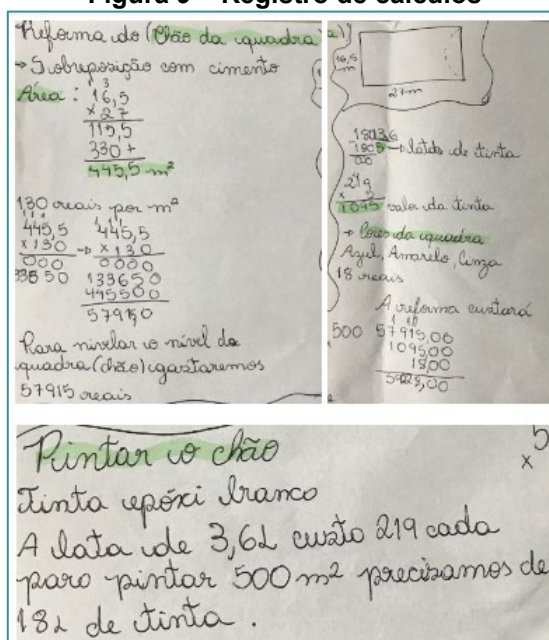 Figura 9 – Registro de cálculos
Reforma do (Chão da quadra)
→ Sobreposição com cimento
Área: 3
16,5
× 27
115,5
330+
445,5 m²
130 reais por m²
445,5 445,5
×130 → ×130
000 0000
33650 133650
445500
57915,0
Para nivelar o nível da
quadra (chão) gastaremos
57915 reais
16,5
m
27m
18 3,6
180 5 → latas de tinta
00
219
× 5
1095 valor da tinta
→ Cores da quadra
Azul, Amarelo, Cinza
18 reais
A reforma custará
500 57915,00
1095,00
18,00
Pintar o chão
× 5
Tinta epóxi branco
A lata de 3,6L custo 219 cada
para pintar 500 m² precisamos de
18L de tinta.